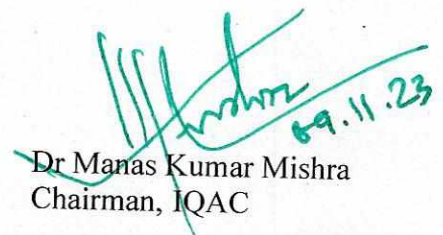 09.11.23
Dr Manas Kumar Mishra
Chairman, IQAC